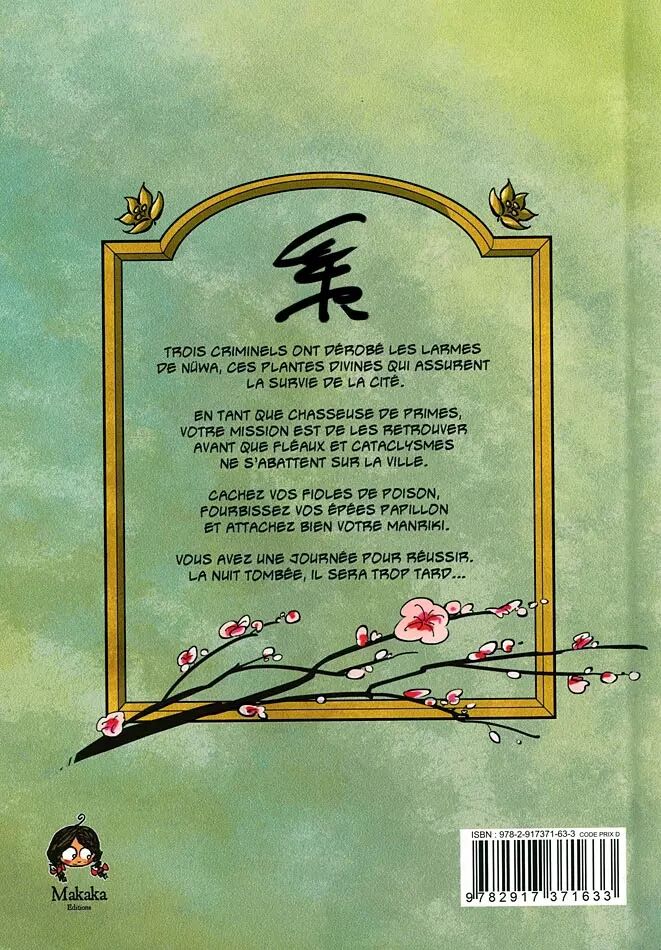 TROIS CRIMINELS ONT DÉROBÉ LES LARMES
DE NÜWA, CES PLANTES DIVINES QUI ASSURENT
LA SURVIE DE LA CITÉ.
EN TANT QUE CHASSEUSE DE PRIMES,
VOTRE MISSION EST DE LES RETROUVER
AVANT QUE FLÉAUX ET CATACLYSMES
NE S'ABATTENT SUR LA VILLE.
CACHEZ VOS FIOLES DE POISON,
FOURBISSEZ VOS ÉPÉES PAPILLON
ET ATTACHEZ BIEN VOTRE MANRIKI.
VOUS AVEZ UNE JOURNÉE POUR RÉUSSIR.
LA NUIT TOMBÉE, IL SERA TROP TARD...
Makaka
Editions
ISBN : 978-2-917371-63-3 CODE PRIX D
9 782917 371633